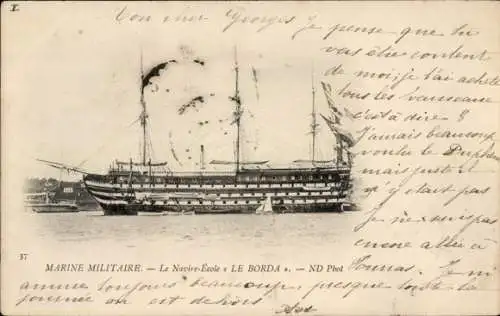 I.
Mon cher Georges Je pense que tu
vas être content
de moi, je t'ai acheté
tous les
c'est à dire
j'amais beaucoup
voulu le
mais justi
qu'il y était pas
Je ne suis pas
encore allée à
37
MARINE MILITAIRE. — Le Navire-École « LE BORDA ». — ND Phot
Je m'
amuse toujours beaucoup, presque toute la
journée on est dehors